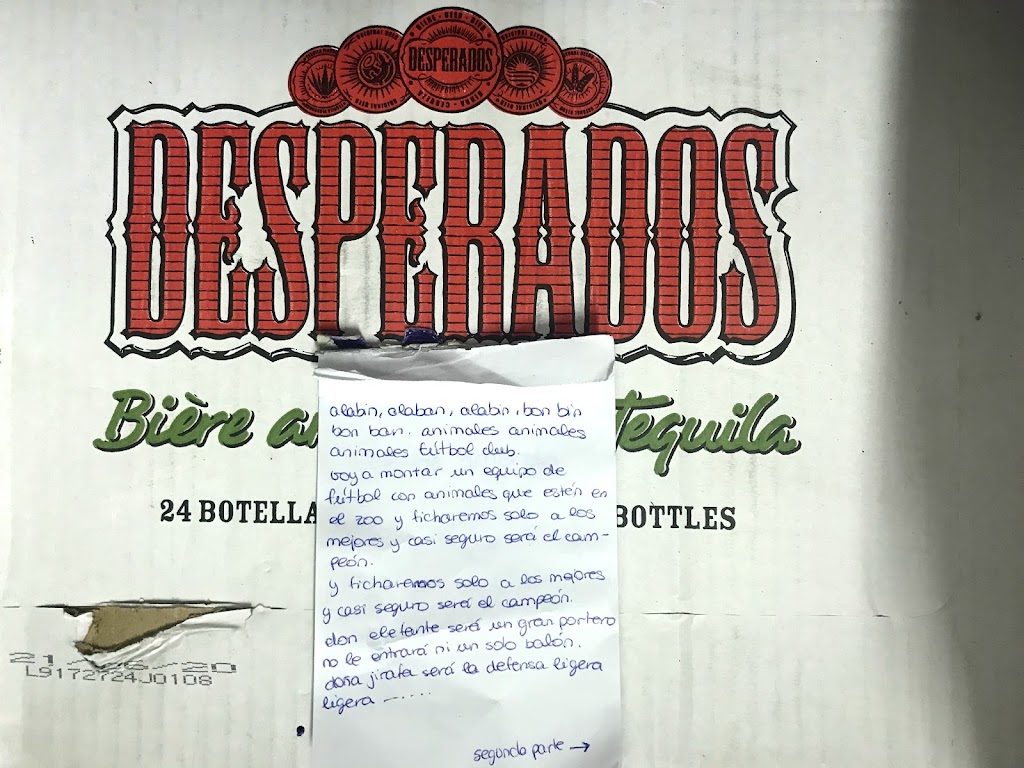 DESPERADOS
DESPERADOS
Bière ar Tequila
24 BOTELLA BOTTLES
alabin, alaban, alabin, bon bin
bon ban. animales animales
animales fútbol club.
voy a montar un equipo de
fútbol con animales que estén en
el zoo y ficharemos solo a los
mejores y casi seguro será el cam-
peón.
y ficharemos solo a los mejores
y casi seguro será el campeón.
don elefante será un gran portero
no le entrará ni un solo balón.
doña jirafa será la defensa ligera
ligera ------
segunda parte →
L9172724J0108